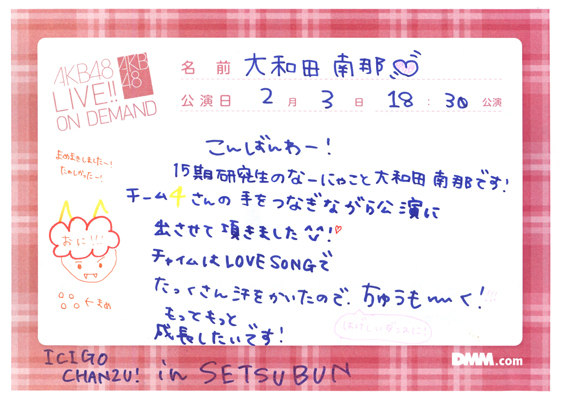 AKB48
LIVE!!
ON DEMAND
AKB
48
名 前 大和田 南那
公演日 2 月 3 日 18 : 30 公演
こんばんわー!
15期研究生のなーにゃこと大和田 南那です!
チーム4さんの手をつなぎながら公演に
出させて頂きました!
チャイムはLOVE SONGで
たっくさん汗をかいたので、ちゅうも〜〜く!!!!
もってもっと
成長したいです!
おめんをしましたー!
たのしかったー!
おに!!!
←まめ
ICIGO
CHANZU! in SETSUBUN
DMM.com